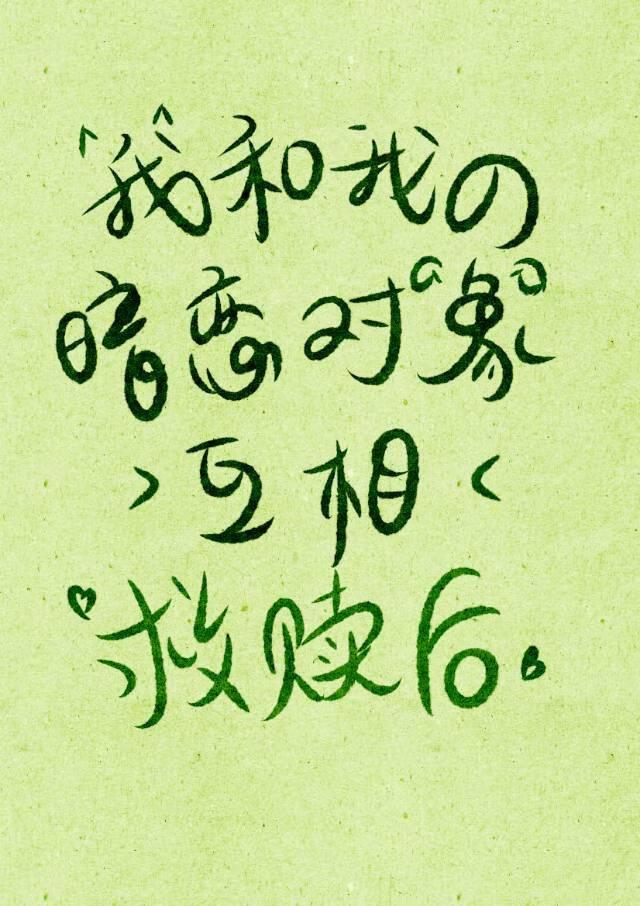 我和我の
暗恋对象
互相
救赎后